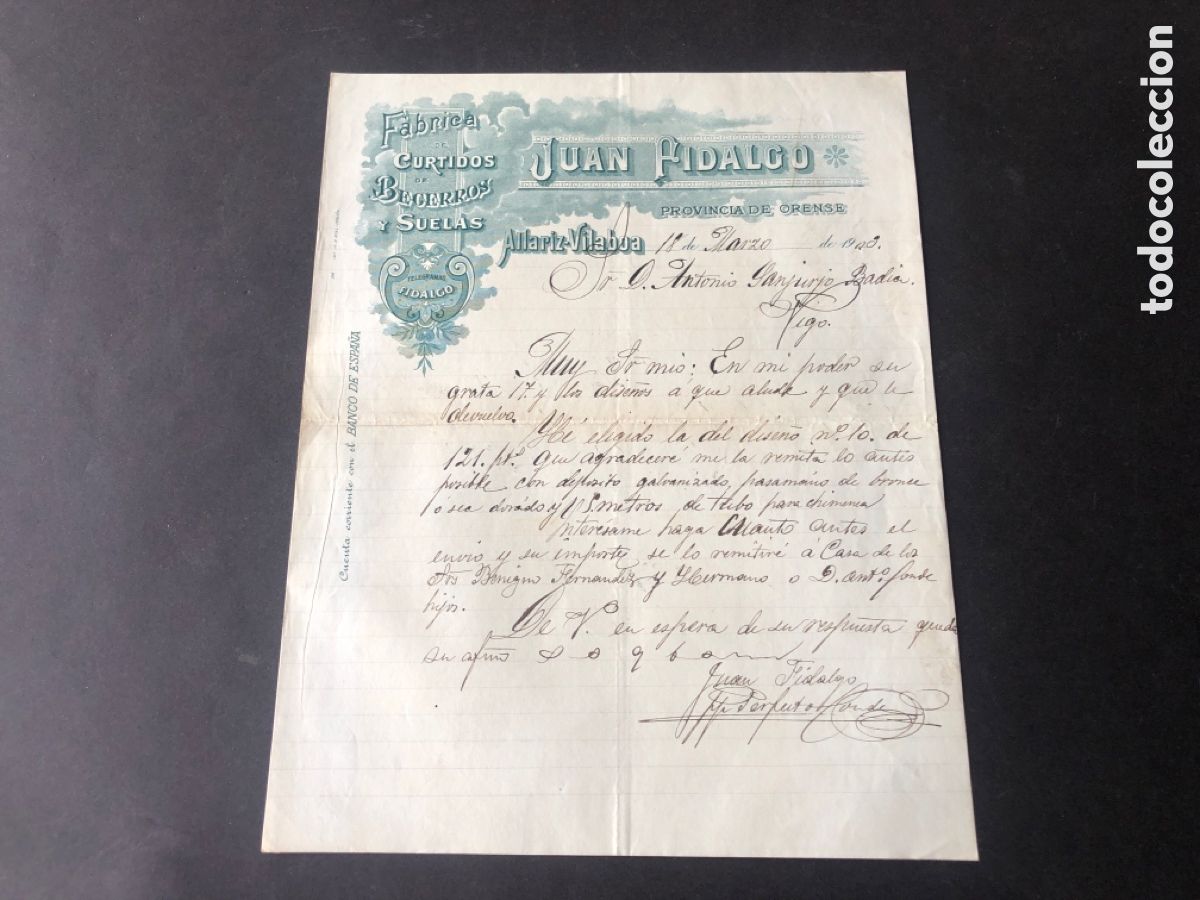 Fábrica
DE
CURTIDOS
DE
BECERROS
Y SUELAS
TELEGRAMAS
FIDALGO
JUAN FIDALGO
PROVINCIA DE ORENSE
Allariz-Vilaboa 18 de Marzo de 1903.
Sr D. Antonio Sanjurjo Badia.
Vigo.
Muy Sr mio: En mi poder su
grata 17. y los diseños á que alude y que le
devuelvo.
Hé eligido la del diseño nº. 10. de
121. pts. que agradeceré me la remita lo antes
posible con deposito galvanizado, pasamano de bronce
o sea dorado y 5 metros de tubo para chimenea
Interésame haga cuanto antes el
envio y su importe se lo remitiré á Casa de los
Srs Benigno Fernandez y Hermano o D. antº. Conde
hijos.
De V. en espera de su respuesta queda
su afmo s s q b m
Juan Fidalgo
pp Perfecto Conde
Cuenta corriente con el BANCO DE ESPAÑA
todocoleccion